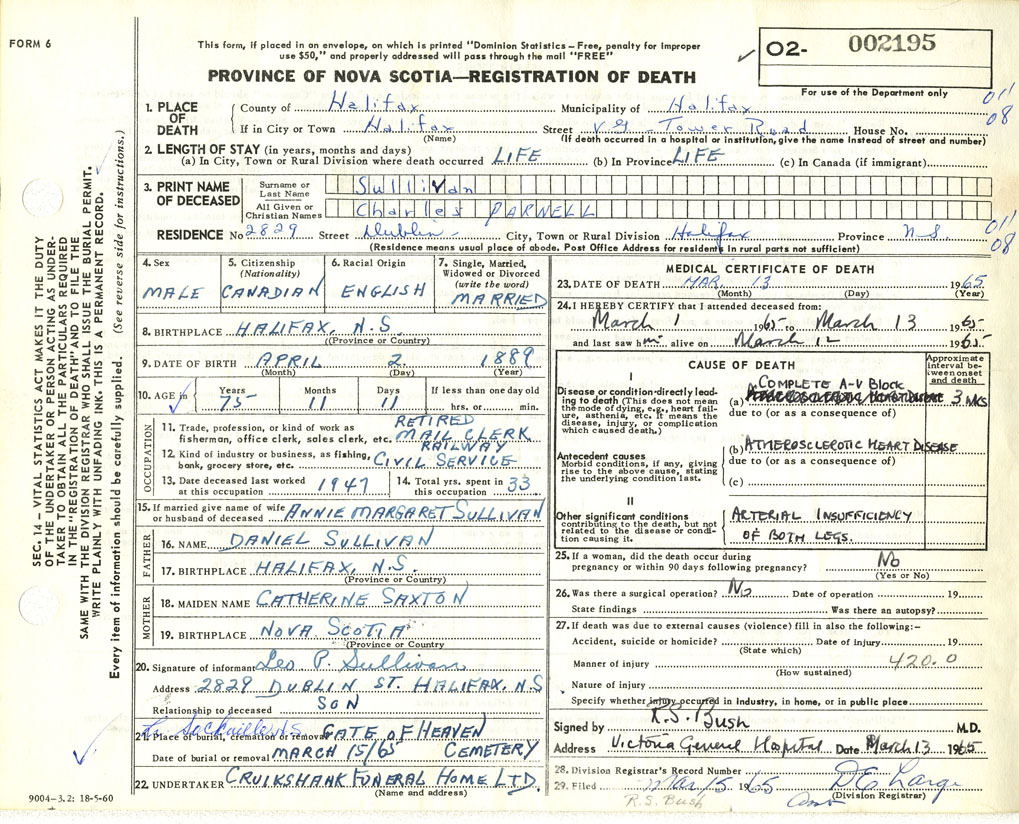 FORM 6
This form, if placed in an envelope, on which is printed "Dominion Statistics – Free, penalty for improper
use $50," and properly addressed will pass through the mail "FREE"
PROVINCE OF NOVA SCOTIA—REGISTRATION OF DEATH
O2- 002195
For use of the Department only
011
08
1. PLACE OF DEATH
County of Halifax Municipality of Halifax
If in City or Town Halifax Street V G - Tower Road House No.
(Name) (If death occurred in a hospital or institution, give the name instead of street and number)
2. LENGTH OF STAY (in years, months and days)
(a) In City, Town or Rural Division where death occurred LIFE (b) In Province LIFE (c) In Canada (if immigrant)
3. PRINT NAME OF DECEASED
Surname or Last Name Sullivan
All Given or Christian Names Charles PARNELL
RESIDENCE No 2829 Street Dublin City, Town or Rural Division Halifax Province N.S.
(Residence means usual place of abode. Post Office Address for residents in rural parts not sufficient)
011
08
4. Sex MALE
5. Citizenship (Nationality) CANADIAN
6. Racial Origin ENGLISH
7. Single, Married, Widowed or Divorced (write the word) MARRIED
8. BIRTHPLACE HALIFAX, N.S.
(Province or Country)
9. DATE OF BIRTH APRIL 2 1889
(Month) (Day) (Year)
10. AGE in Years 75 Months 11 Days 11 If less than one day old hrs. or min.
OCCUPATION
11. Trade, profession, or kind of work as fisherman, office clerk, sales clerk, etc. RETIRED MAIL CLERK
12. Kind of industry or business, as fishing, bank, grocery store, etc. RAILWAY CIVIL SERVICE
13. Date deceased last worked at this occupation 1947
14. Total yrs. spent in this occupation 33
15. If married give name of wife or husband of deceased ANNIE MARGARET SULLIVAN
FATHER
16. NAME DANIEL SULLIVAN
17. BIRTHPLACE HALIFAX, N.S.
(Province or Country)
MOTHER
18. MAIDEN NAME CATHERINE SAXTON
19. BIRTHPLACE NOVA SCOTIA
(Province or Country
20. Signature of informant Leo P. Sullivan
Address 2829 DUBLIN ST. HALIFAX, N.S
Relationship to deceased SON
21. Place of burial, cremation or removal GATE OF HEAVEN CEMETERY
Date of burial or removal MARCH 15/65
22. UNDERTAKER CRUIKSHANK FUNERAL HOME LTD.
(Name and address)
MEDICAL CERTIFICATE OF DEATH
23. DATE OF DEATH MAR. 13 1965
(Month) (Day) (Year)
24. I HEREBY CERTIFY that I attended deceased from:
March 1 1965 to March 13 1965
and last saw him alive on March 12 1965
CAUSE OF DEATH
Approximate interval between onset and death
I
Disease or condition directly leading to death (This does not mean the mode of dying, e.g., heart failure, asthenia, etc. It means the disease, injury, or complication which caused death.)
(a) COMPLETE A-V BLOCK 3 WKS
due to (or as a consequence of)
Antecedent causes
Morbid conditions, if any, giving rise to the above cause, stating the underlying condition last.
(b) ATHEROSCLEROTIC HEART DISEASE
due to (or as a consequence of)
(c)
II
Other significant conditions contributing to the death, but not related to the disease or condition causing it.
ARTERIAL INSUFFICIENCY
OF BOTH LEGS.
25. If a woman, did the death occur during pregnancy or within 90 days following pregnancy? No
(Yes or No)
26. Was there a surgical operation? No Date of operation 19
State findings Was there an autopsy?
27. If death was due to external causes (violence) fill in also the following:–
Accident, suicide or homicide? Date of injury 19
(State which)
Manner of injury 420.0
(How sustained)
Nature of injury
Specify whether injury occurred in industry, in home, or in public place
Signed by R.S. Bush M.D.
Address Victoria General Hospital Date March 13 1965
28. Division Registrar's Record Number
29. Filed Mar 15 1965
(Division Registrar)
R.S. Bush
SEC. 14 – VITAL STATISTICS ACT MAKES IT THE DUTY
OF THE UNDERTAKER OR PERSON ACTING AS UNDER-
TAKER TO OBTAIN ALL THE PARTICULARS REQUIRED
IN THE "REGISTRATION OF DEATH" AND TO FILE THE
SAME WITH THE DIVISION REGISTRAR WHO SHALL ISSUE THE BURIAL PERMIT.
WRITE PLAINLY WITH UNFADING INK. THIS IS A PERMANENT RECORD.
Every item of information should be carefully supplied. (See reverse side for instructions.)
9004-3.2: 18-5-60